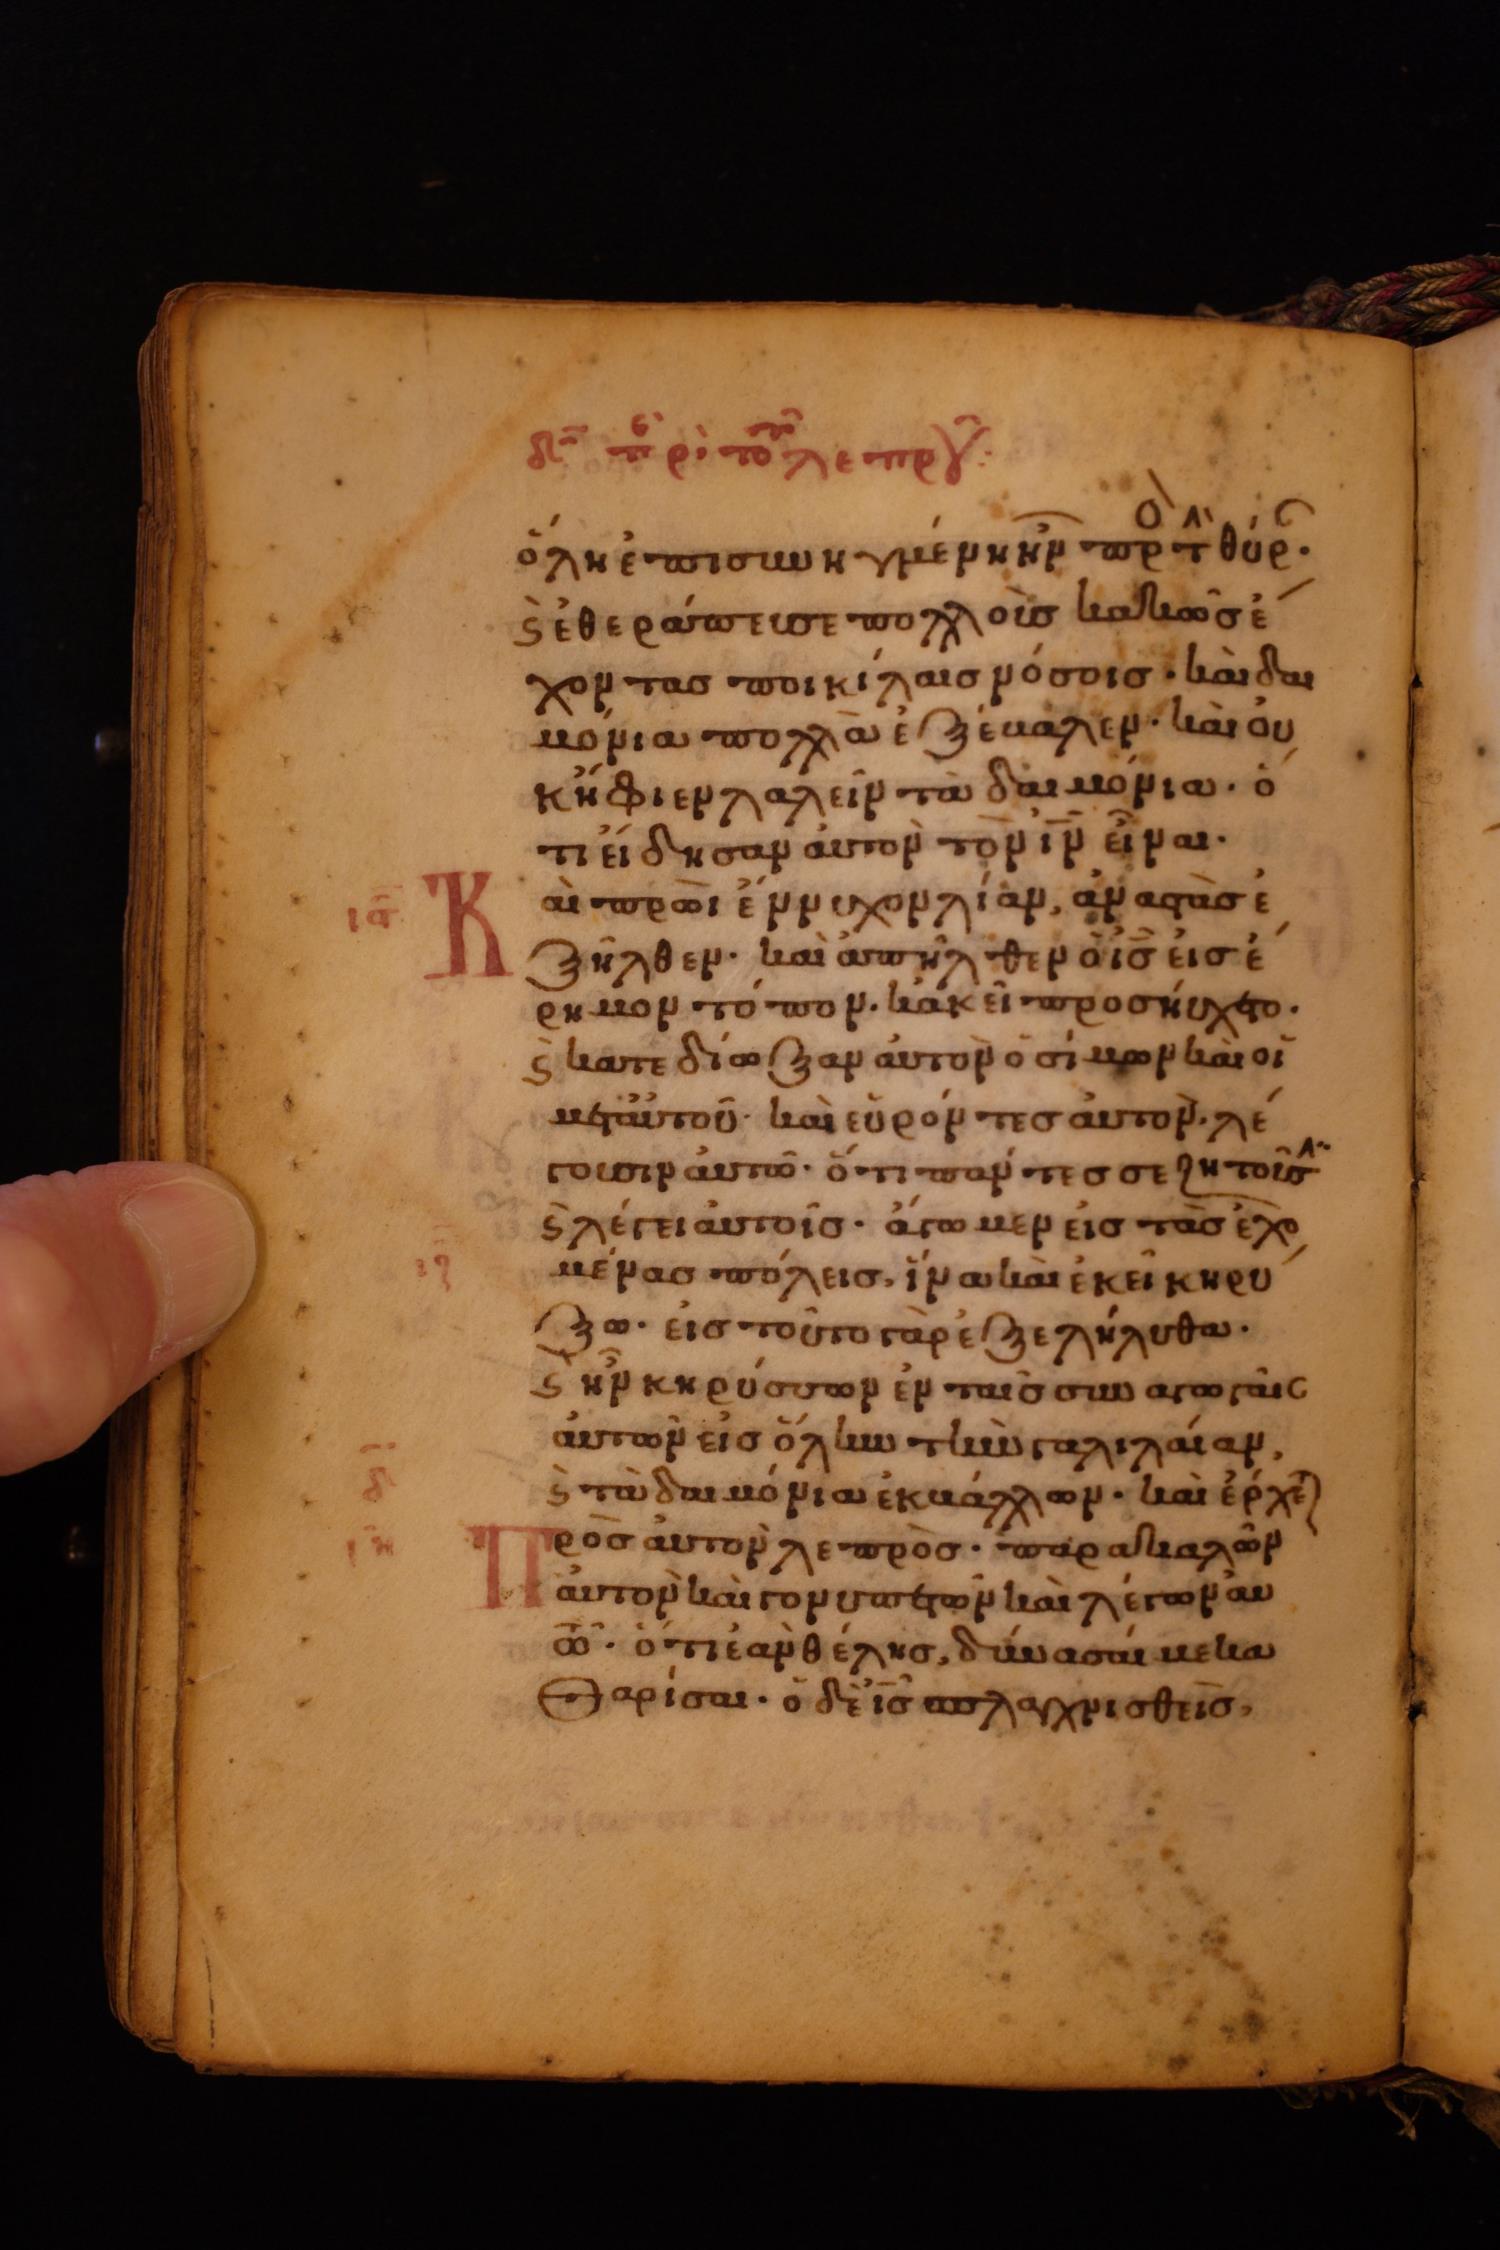 δ περὶ τοῦ λεπροῦ:
ὅλη ἐπισυνηγμένη ἦν πρὸς τὴν θύρ·
ϛ ἐθεράπευσε πολλοὺς κακῶς ἔ
χοντας ποικίλαις νόσοις· καὶ δαι
μόνια πολλὰ ἐξέβαλεν· καὶ οὐ
κ ἤφιεν λαλεῖν τὰ δαιμόνια· ὅ
τι ἤδησαν αὐτὸν τὸν ιν εἶναι·
ια Καὶ πρωῒ ἔννυχον λίαν, ἀναστὰς ἐ
ξῆλθεν· καὶ ἀπῆλθεν ὁ ις εἰς ἔ
ρημον τόπον· κἀκεῖ προσηύχετο·
ϛ κατεδίωξαν αὐτὸν ὁ σίμων καὶ οἱ
μετ' αὐτοῦ· καὶ εὑρόντες αὐτὸν· λέ
γουσιν αὐτῶ· ὅτι πάντες σε ζητοῦσ
ϛ λέγει αὐτοῖς· ἄγωμεν εἰς τὰς ἐχο
μένας πόλεις, ἵνα καὶ ἐκεῖ κηρύ
ξω· εἰς τοῦτο γὰρ ἐξελήλυθα·
ϛ ἦν κηρύσσων ἐν ταῖς συναγωγαῖς
αὐτῶν εἰς ὅλην τὴν γαλιλαίαν,
δ ϛ τὰ δαιμόνια ἐκβάλλων· καὶ ἔρχε
ιη Πρὸς αὐτὸν λεπρὸς· παρακαλῶν
αὐτὸν καὶ γονυπετῶν καὶ λέγων αὐ
τῶ· ὅτι ἐὰν θέλης, δύνασαί με κα
θαρίσαι· ὁ δὲ ις σπλαγχνισθεὶς,